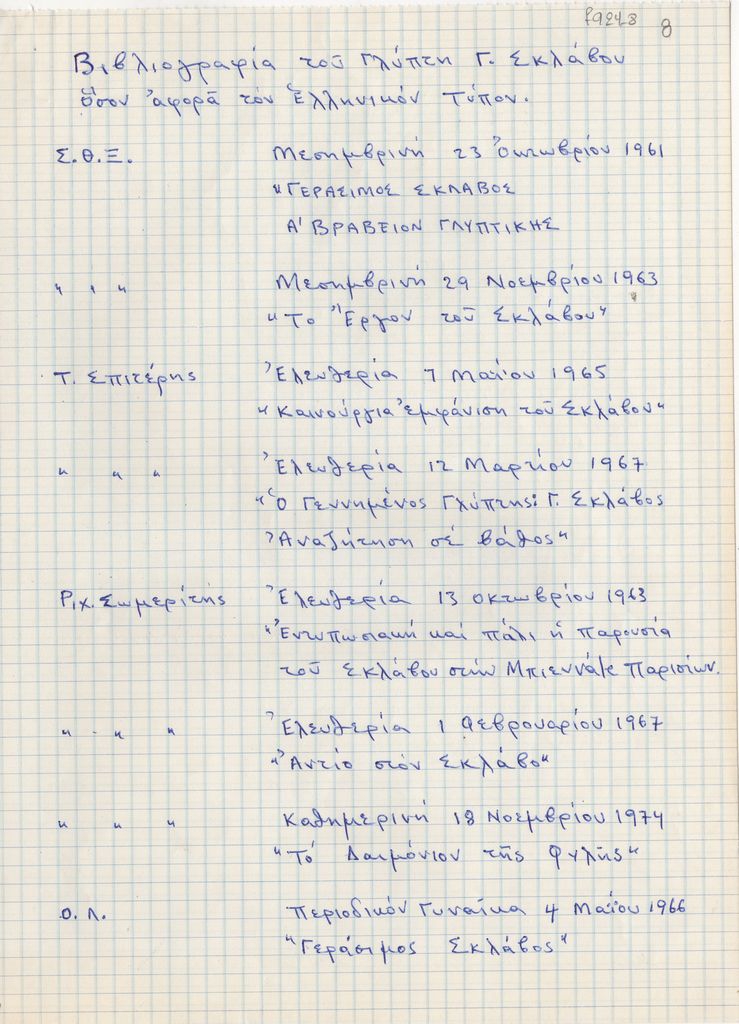 f924.8 8
Βιβλιογραφία τοῦ Γλύπτη Γ. Σκλάβου
ὅσον ἀφορᾶ τόν Ἑλληνικόν Τύπον.
Σ.Θ.Ξ. Μεσημβρινή 23 Ὀκτωβρίου 1961
"ΓΕΡΑΣΙΜΟΣ ΣΚΛΑΒΟΣ
Α' ΒΡΑΒΕΙΟΝ ΓΛΥΠΤΙΚΗΣ
" " " Μεσημβρινή 29 Νοεμβρίου 1963
"Το Ἔργον τοῦ Σκλάβου"
Τ. Σπιτέρης Ἐλευθερία 7 Μαΐου 1965
"Καινούργια ἐμφάνιση τοῦ Σκλάβου"
" " " Ἐλευθερία 12 Μαρτίου 1967
"Ὁ Γεννημένος Γλύπτης: Γ. Σκλάβος
Ἀναζήτηση σέ βάθος"
Ριχ. Σωμερίτης Ἐλευθερία 13 Οκτωβρίου 1963
"Ἐντυπωσιακή καί πάλι ἡ παρουσία
τοῦ Σκλάβου στήν Μπιεννάλε Παρισίων.
" " " Ἐλευθερία 1 Φεβρουαρίου 1967
"Ἀντίο στόν Σκλάβο"
" " " Καθημερινή 18 Νοεμβρίου 1974
"Τό Δαιμόνιον τῆς Φυλῆς"
Ο. Λ. Περιοδικόν Γυναῖκα 4 Μαΐου 1966
"Γεράσιμος Σκλάβος"